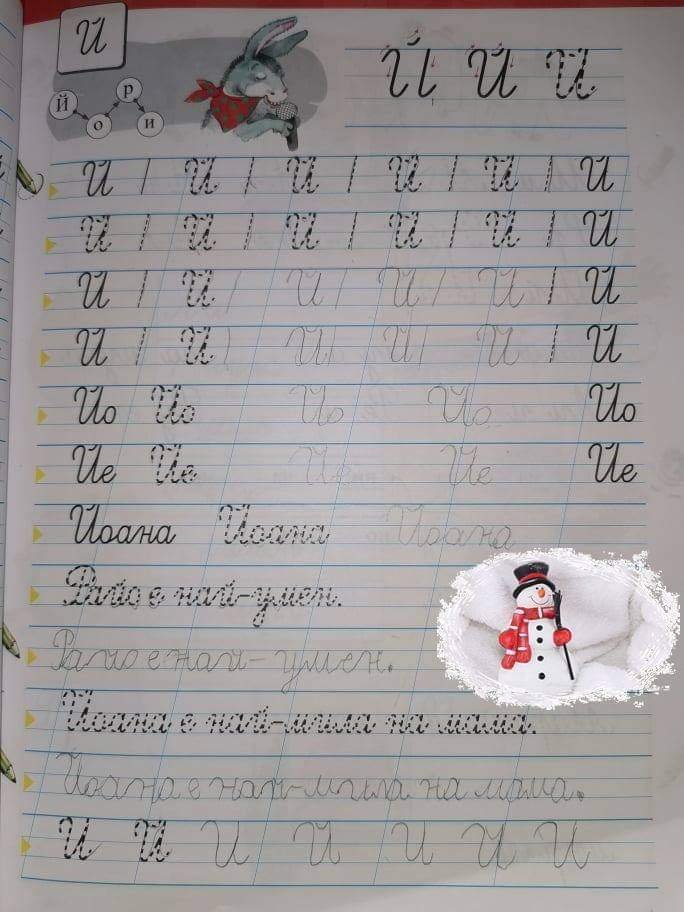 Й
Й о р и
Й Й Й
Й Й Й Й Й Й
Й Й Й Й Й Й
Й Й Й Й Й Й
Й Й Й Й Й Й
Йо Йо Йо Йо Йо
Йе Йе Йе Йе Йе
Йоана Йоана Йоана
Райо е най-умен.
Райо е най-умен.
Йоана е най-мила на мама.
Йоана е най-мила на мама.
Й Й Й Й Й Й Й